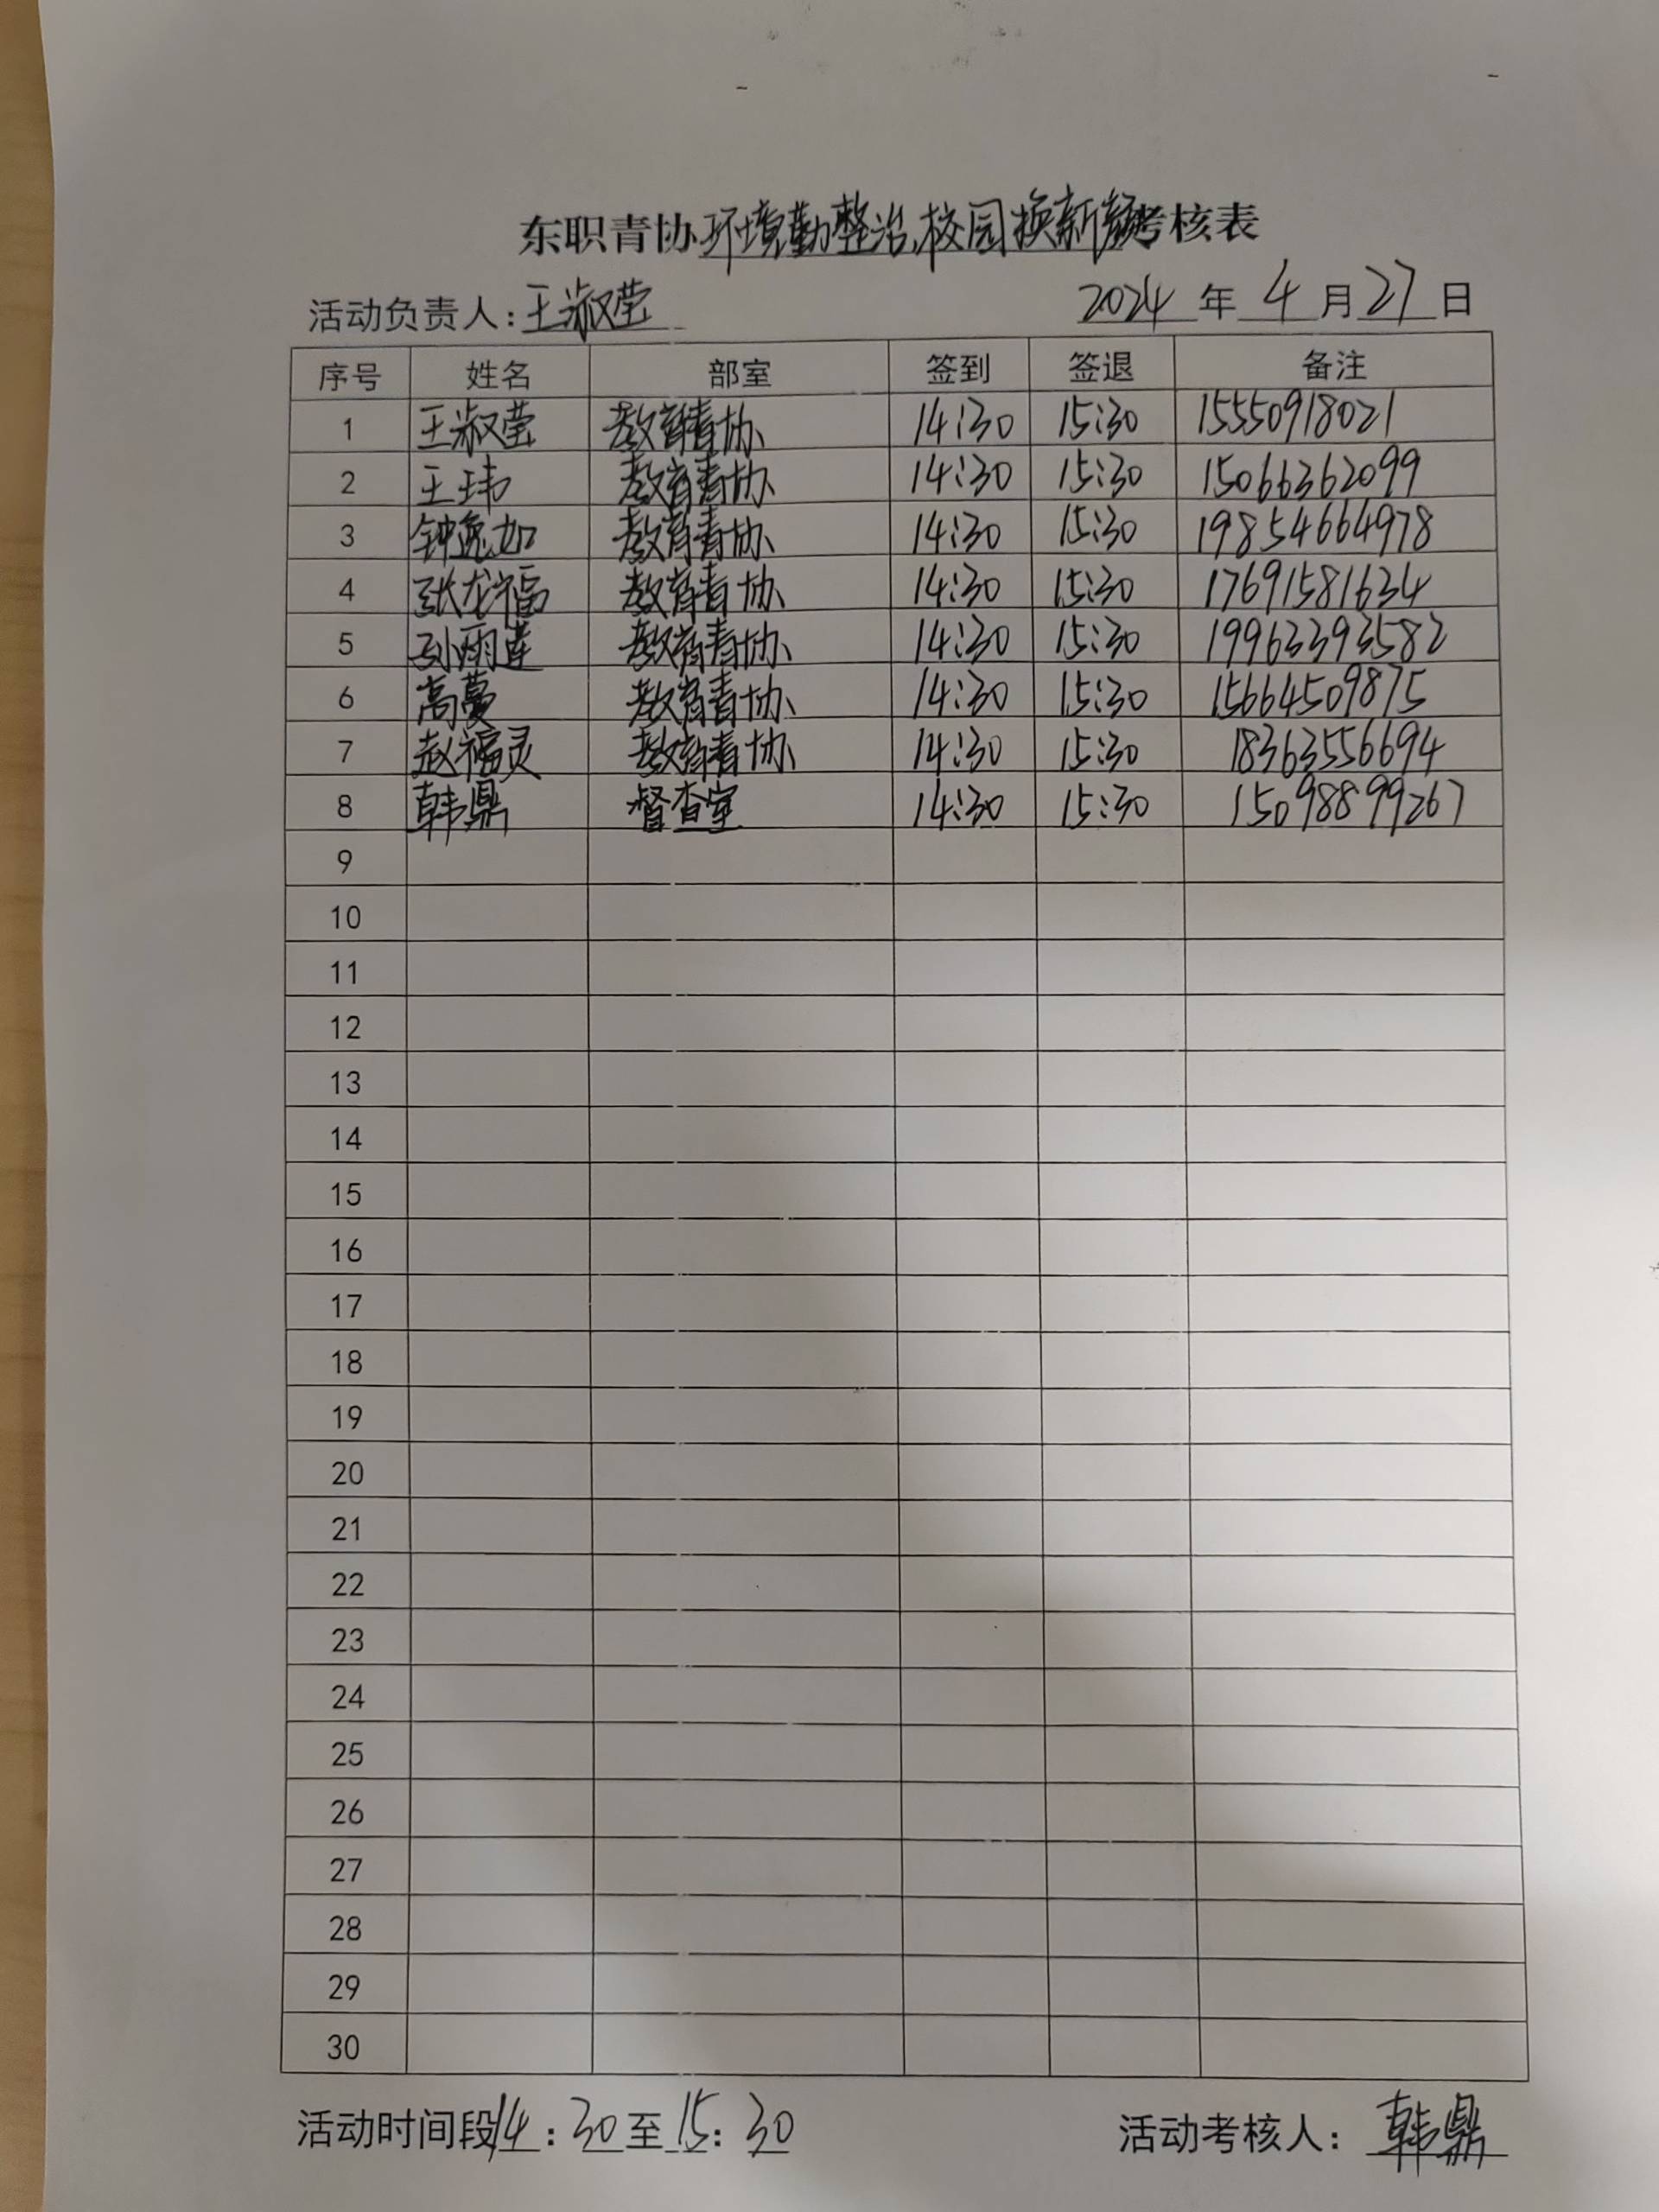 东职青协环境勤整治,校园换新颜考核表
活动负责人:王淑莹 2024 年 4 月 27 日
序号 姓名 部室 签到 签退 备注
1 王淑莹 教育青协 14:30 15:30 15550918021
2 王玮 教育青协 14:30 15:30 15066362099
3 钟逸如 教育青协 14:30 15:30 19854664978
4 张龙福 教育青协 14:30 15:30 17691581634
5 孙雨莲 教育青协 14:30 15:30 19963393582
6 高蔓 教育青协 14:30 15:30 15664509875
7 赵福灵 教育青协 14:30 15:30 18363556694
8 韩鼎 督查室 14:30 15:30 15098899267
9
10
11
12
13
14
15
16
17
18
19
20
21
22
23
24
25
26
27
28
29
30
活动时间段14:30至15:30 活动考核人:韩鼎